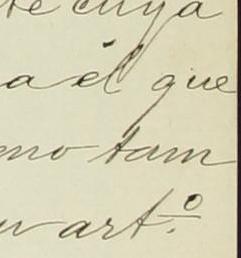 te cuya
a él que
mo tam
art.º